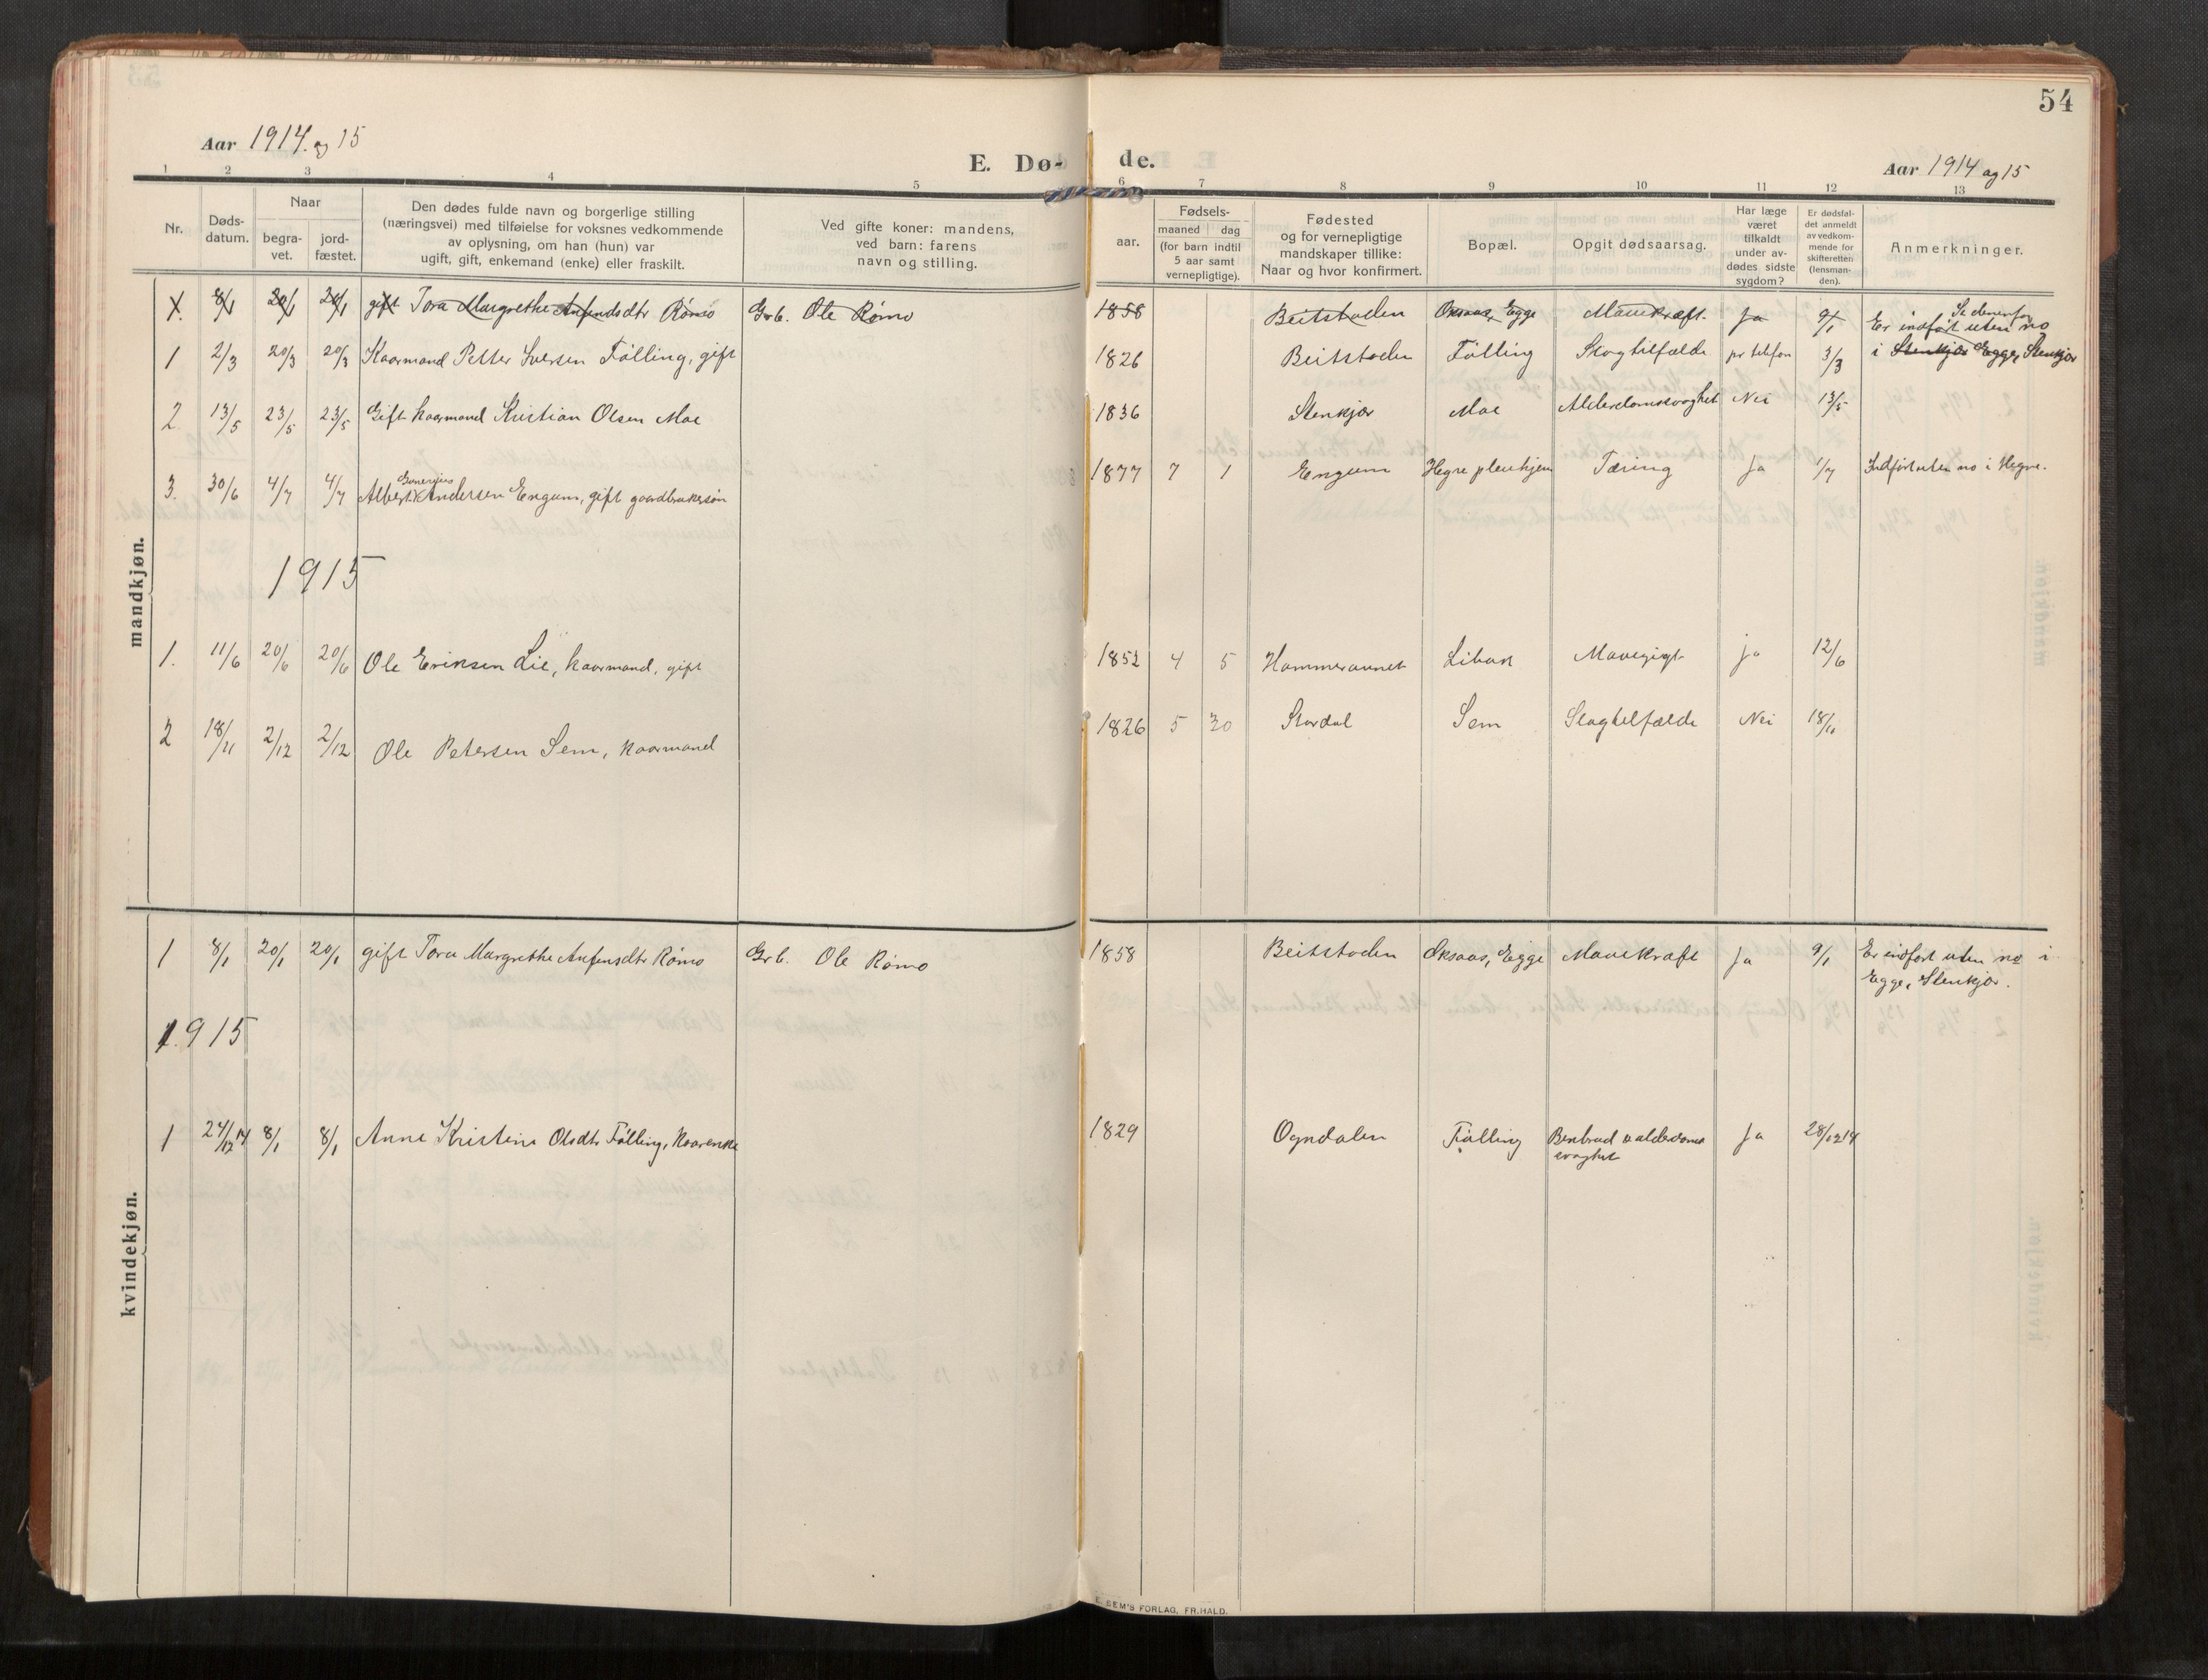 54
Aar 1914. og 15
E. Dø- de.
Aar 1914 og 15
1 2 3 4 5 6 7 8 9 10 11 12 13
Nr.
Døds-
datum.
Naar
begra-
vet.
jord-
fæstet.
Den dødes fulde navn og borgerlige stilling
(næringsvei) med tilføielse for voksnes vedkommende
av oplysning, om han (hun) var
ugift, gift, enkemand (enke) eller fraskilt.
Ved gifte koner: mandens,
ved barn: farens
navn og stilling.
aar.
Fødsels-
maaned dag
(for barn indtil
5 aar samt
vernepligtige).
Fødested
og for vernepligtige
mandskaper tillike:
Naar og hvor konfirmert.
Bopæl.
Opgit dødsaarsag.
Har læge
været
tilkaldt
under av-
dødes sidste
sygdom?
Er dødsfal-
det anmeldt
av vedkom-
mende for
skifteretten
(lensman-
den).
Anmerkninger.
mandkjøn.
1. 8/1 20/1 20/1 gift Tora Margrethe Anfindsdtr Rømo Grb. Ole Rømo 1858 Beitstaden Oksaas, Egge Mavekræft. Ja 9/1 Er indført uten no
Se denenfor
1 2/3 20/3 20/3 Kaarmand Petter Iversen Følling, gift 1826 Beitstaden Følling Slagtilfælde pr telefon 3/3 i Stenkjær Egge, Stenkjær
2. 13/5 23/5 23/5 Gift kaarmand Kristian Olsen Moe 1836 Stenkjær Moe Alderdomssvaghet Nei 13/5
3. 30/6 4/7 4/7 Albert Andersen Engum, gift gaardbrukersøn 1877 7 1 Engum Hegre pleiehjem Tæring Ja 1/7 Indført uten no i Hegre.
1915
1. 11/6 20/6 20/6 Ole Eriksen Lie, kaarmand, gift 1852 4 5 Hammeraunet Libak Mavegigt ja 12/6
2 18/11 2/12 2/12 Ole Petersen Sem, kaarmand 1826 5 30 Stordal Sem Slagtilfælde Nei 18/11
kvindekjøn.
1 8/1 20/1 20/1 gift Tora Margrethe Anfinsdtr Rømo Grb. Ole Rømo 1858 Beitstaden Oksaas, Egge Mavekræft Ja 9/1 Er indført uten no i
Egge, Stenkjær.
1915
1 24/12 14 8/1 8/1 Anne Kristine Olsdtr Følling, Kaarenke 1829 Ogndalen Følling Benbrud & alderdoms Ja 28/12 14
svaghet
E. SEM'S FORLAG, FR.HALD.